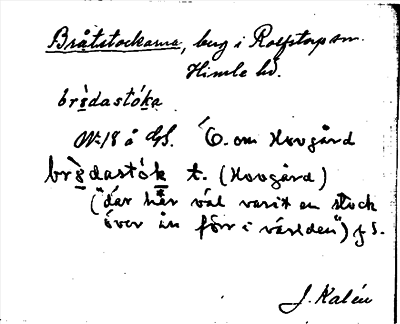 Bråtstockarna, berg i Rolfstorp sn.
Himle hd.
brɔ̀dastóka
Nr 18 å GS. Ö. om Hovgård
brɔ̀dastók t. (Hovgård)
("där här väl varit en stock
över ån förr i världen") GS.
J. Kalén